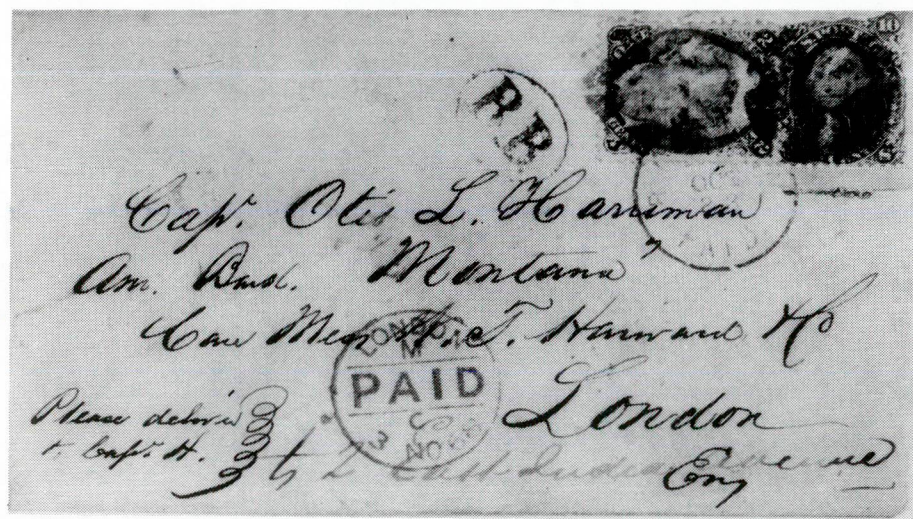 10
RB
OC
PAID
Capt. Otis L. Harriman
Am. Bark. "Montana"
Care Messrs. T. Harward & Co
LONDON
PAID
3 NO 66
London
Please deliver
to Capt. H.
to 2 East India Avenue
Eng